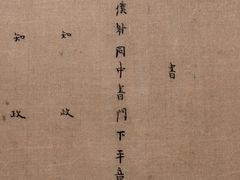 書
僕射同中書門下平章
知 政
知 政